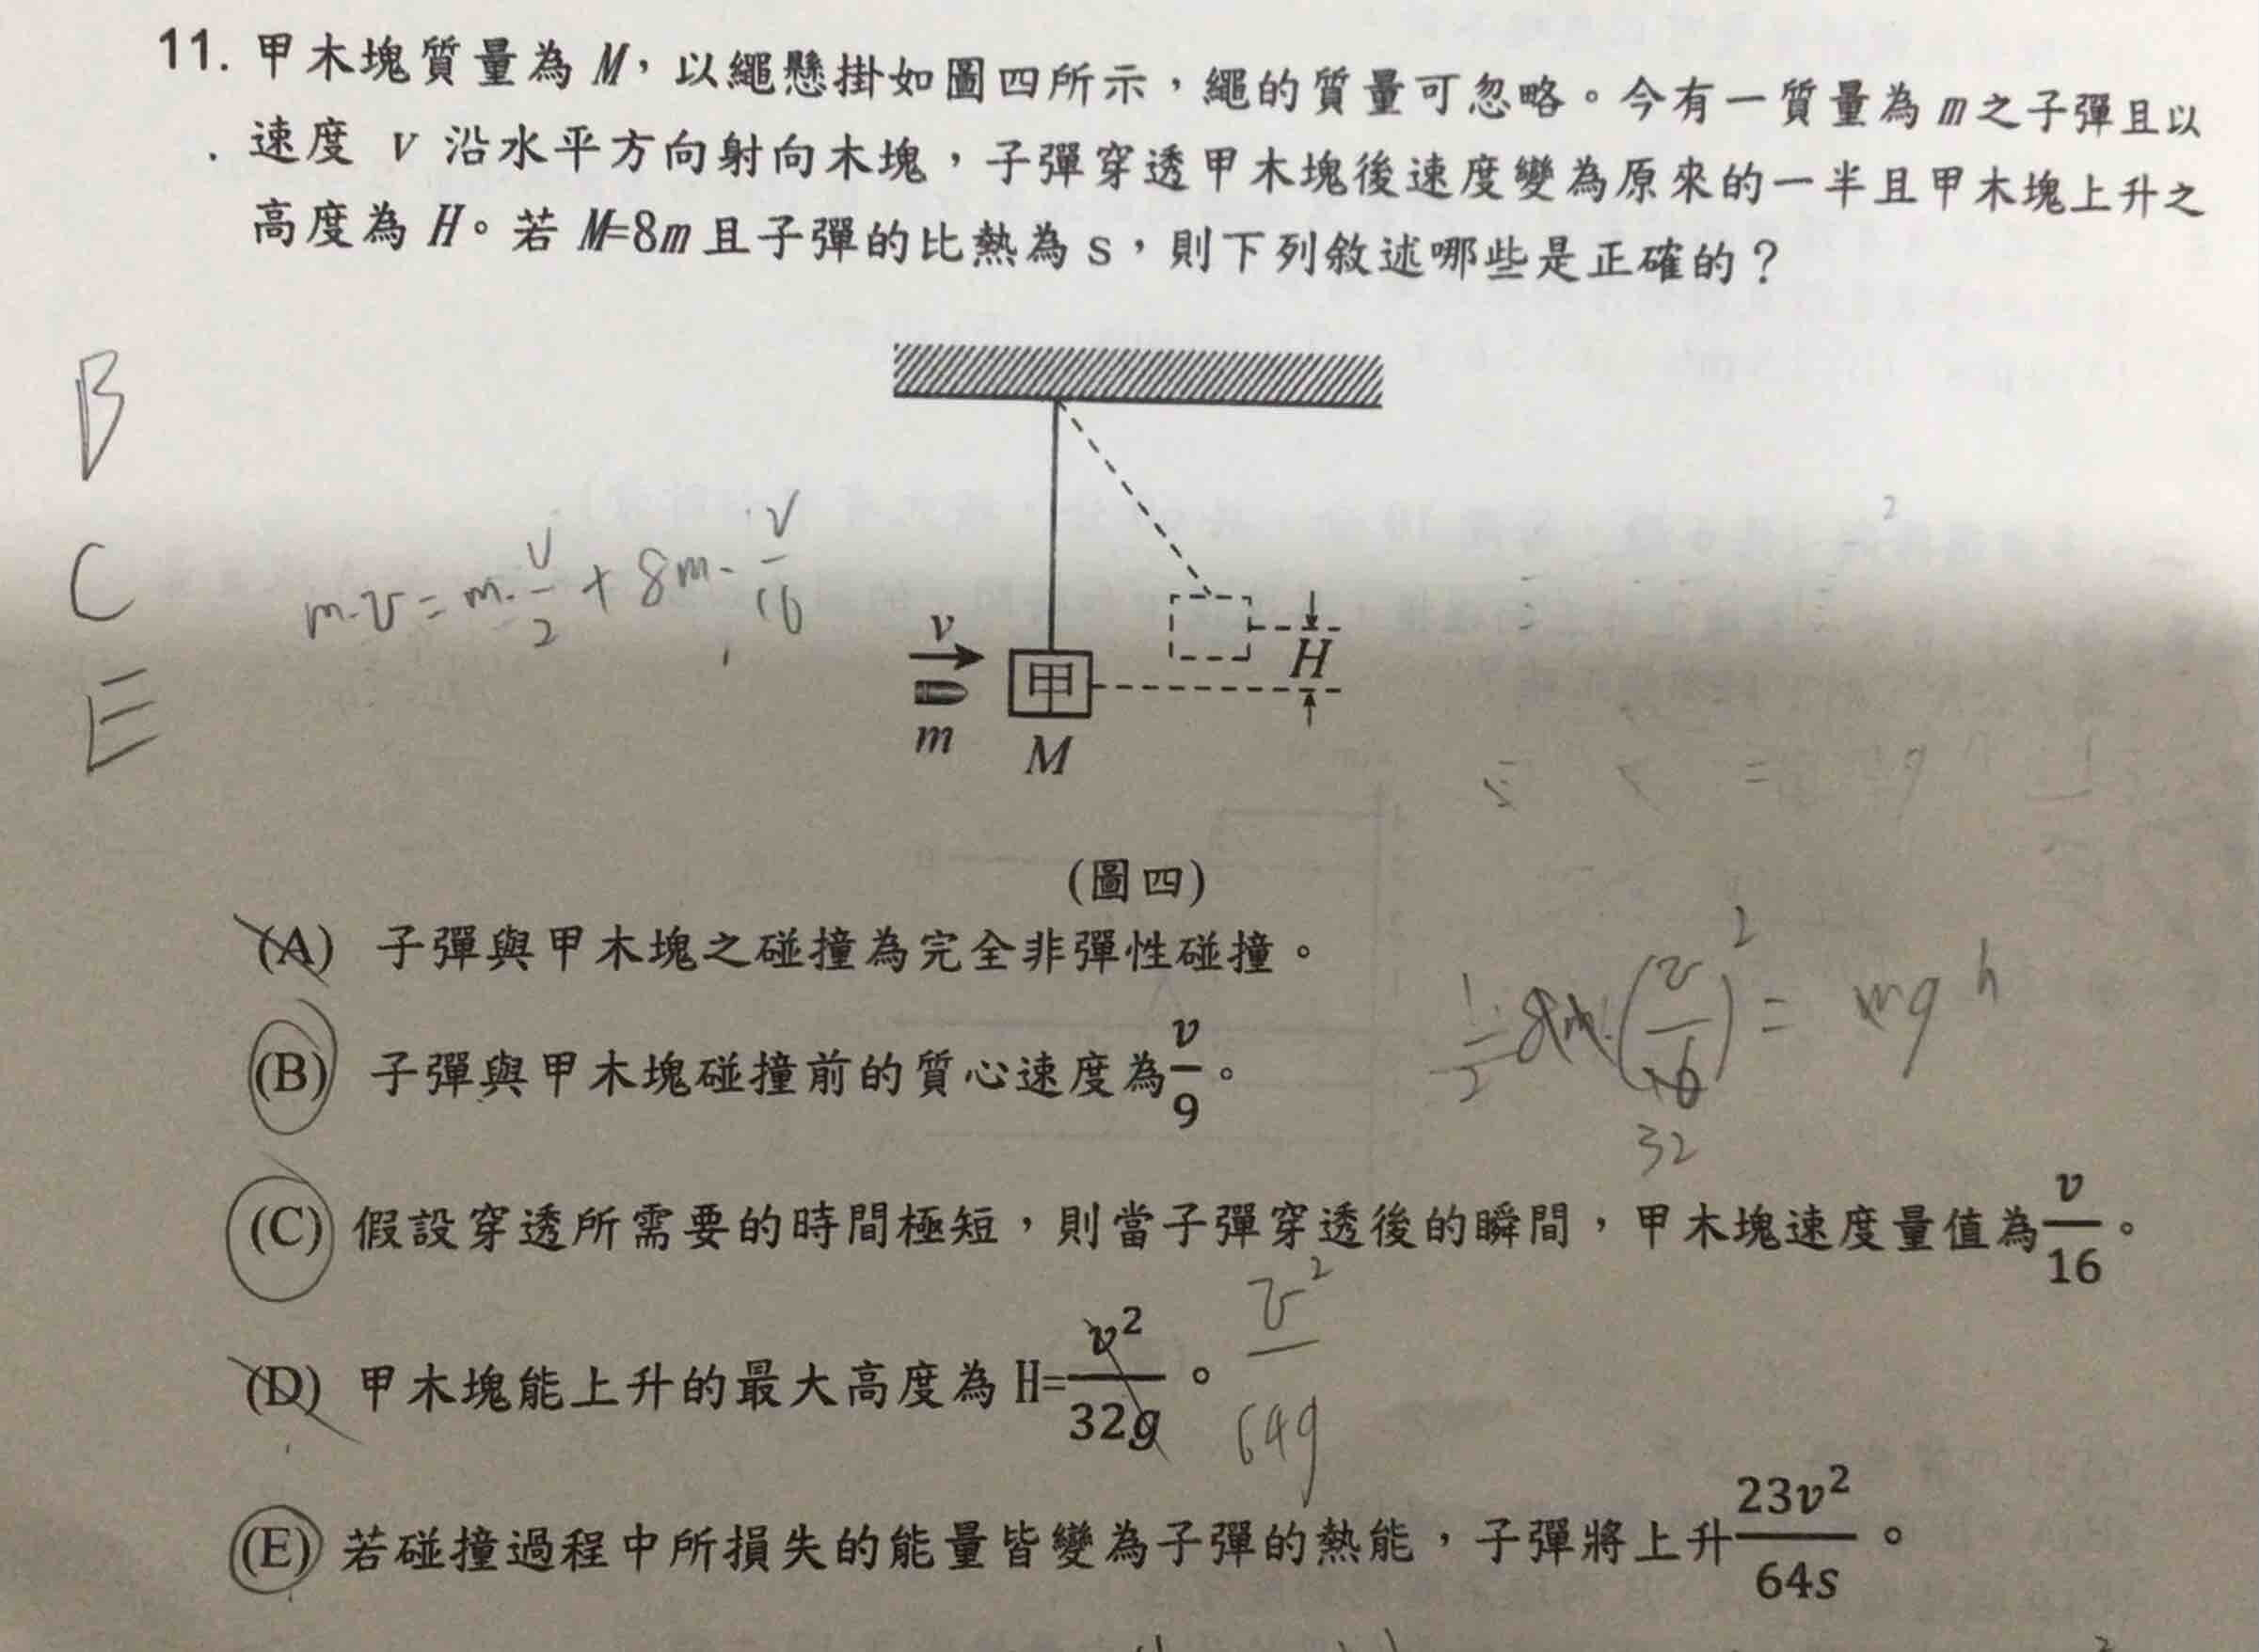 11. 甲木塊質量為 M，以繩懸掛如圖四所示，繩的質量可忽略。今有一質量為 m 之子彈且以
速度 v 沿水平方向射向木塊，子彈穿透甲木塊後速度變為原來的一半且甲木塊上升之
高度為 H。若 M=8m 且子彈的比熱為 s，則下列敘述哪些是正確的？
B
C
E
m·v = m·v/2 + 8m·v/16
v
m
甲
M
H
(圖四)
(A) 子彈與甲木塊之碰撞為完全非彈性碰撞。
(B) 子彈與甲木塊碰撞前的質心速度為 v/9。
1/2 8m·(v/16)² = mgh
32
(C) 假設穿透所需要的時間極短，則當子彈穿透後的瞬間，甲木塊速度量值為 v/16。
(D) 甲木塊能上升的最大高度為 H=v²/32g。
v²/64g
(E) 若碰撞過程中所損失的能量皆變為子彈的熱能，子彈將上升 23v²/64s。